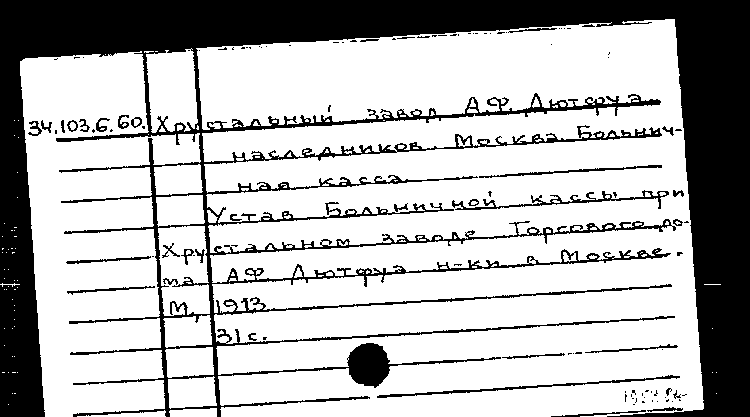 34.103.6.60. Хрустальный завод А.Ф. Дютфуа
наследников. Москва. Больнич-
ная касса
Устав Больничной кассы при
Хрустальном заводе Торгового до-
ма А.Ф Дютфуа н-ки в Москве.
М., 1913
31 с.